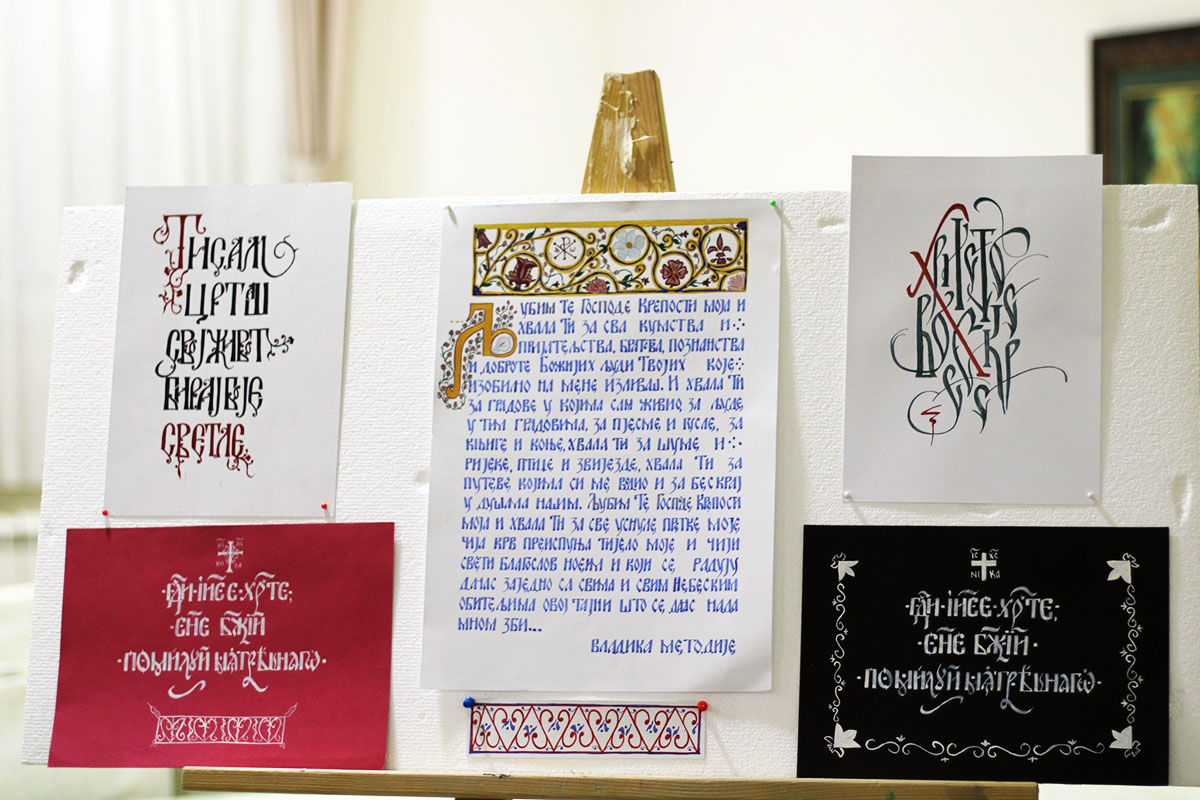 ТИ САМ
ЦРТАШ
СВОЈ ЖИВОТ
БИРАЈ БОЈЕ
СВЕТЛЕ
ІС ХС
НИ КА
·ГДИ·ІИСЕ·ХРТЕ;
·СНЕ БЖІЙ
·ПОМИЛУЙ МѦ ГРѢШНАГѠ·
ЉУБИМ ТЕ ГОСПОДЕ КРЕПОСТИ МОЈА И
ХВАЛА ТИ ЗА СВА КУМСТВА И
ПРИЈАТЕЉСТВА, БРАТСВА, ПОЗНАНСТВА
И ДОБРОТЕ БОЖИЈИХ ЉУДИ ТВОЈИХ КОЈЕ
ИЗОБИЛНО НА МЕНЕ ИЗЛИВАШ. И ХВАЛА ТИ
ЗА ГРАДОВЕ У КОЈИМА САМ ЖИВИО, ЗА ЉУДЕ
У ТИМ ГРАДОВИМА, ЗА ПЈЕСМЕ И ГУСЛЕ, ЗА
КЊИГЕ И КОЊЕ, ХВАЛА ТИ ЗА ШУМЕ И
РИЈЕКЕ, ПТИЦЕ И ЗВИЈЕЗДЕ, ХВАЛА ТИ ЗА
ПУТЕВЕ КОЈИМА СИ МЕ ВОДИО И ЗА БЕСКРАЈ
У ДУШАМА НАШИМ. ЉУБИМ ТЕ ГОСПОДЕ КРЕПОСТИ
МОЈА И ХВАЛА ТИ ЗА СВЕ УСНУЛЕ ПРЕТКЕ МОЈЕ,
ЧИЈА КРВ ПРЕИСПУЊА ТИЈЕЛО МОЈЕ И ЧИЈИ
СВЕТИ БЛАГОСЛОВ НОСИМ И КОЈИ СЕ РАДУЈУ
ДАНАС ЗАЈЕДНО СА СВИМА И СВИМ НЕБЕСКИМ
ОБИТЕЉИМА ОВОЈ ТАЈНИ ШТО СЕ ДАНАС НАДА
МНОМ ЗБИ...
ВЛАДИКА МЕТОДИЈЕ
ХРИСТОС
ВОСКРЕСЕ
ІС ХС
НІ КА
·ГДИ·ІИСЕ·ХРТЕ;
·СНЕ БЖІЙ·
·ПОМИЛУЙ МѦ ГРѢШНАГѠ·